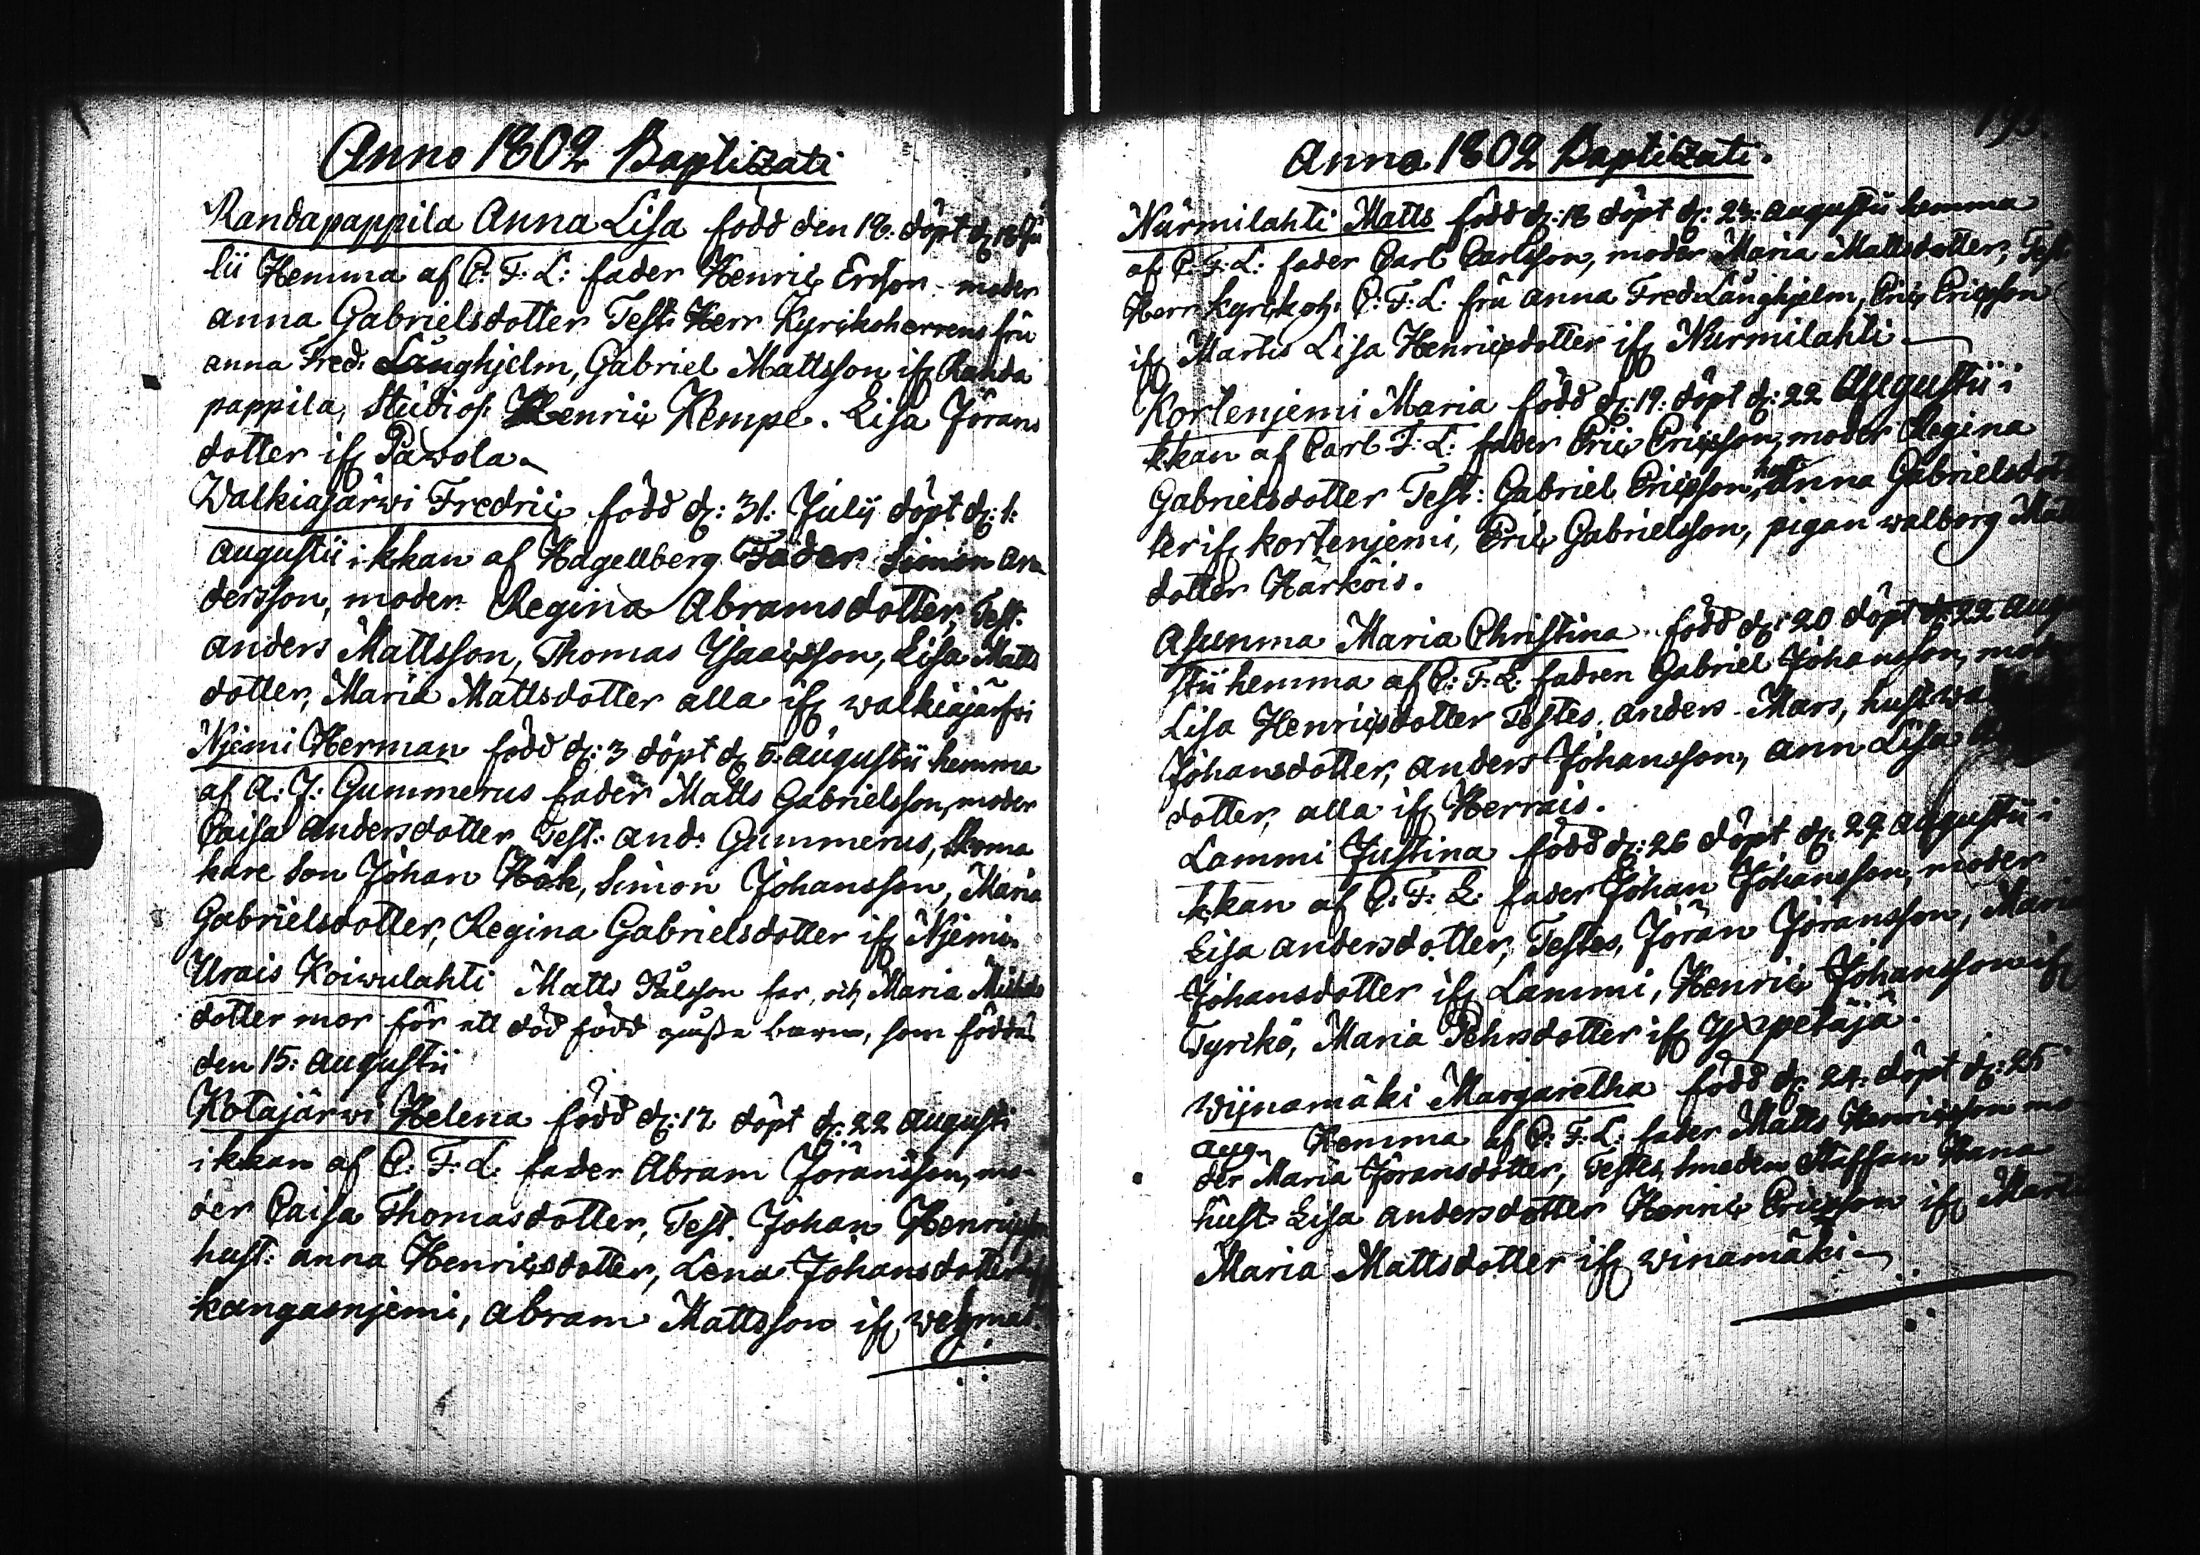 Anno 1802 Baptizati
Randapappila Anna Lisa född den 18. döpt d: 18 Ju
lii Hemma af C: F: L: fader Henric Ersson moder
Anna Gabrielsdotter Test: Herr Kyrckoherrens fru
Anna Fred: Långhjelm, Gabriel Mattsson if: Randa
pappila, Studios: Henric Kempe. Lisa Jörans
dotter if: Pawola
Walkiajärwi Fredric född d: 31: Julii döpt d: 1:
Augustii i kkan af Hagellberg Fader Simon An
dersson, moder Regina Abramsdotter, Test:
Anders Mattsson, Thomas Ysaacsson, Lisa Matts
dotter, Maria Mattsdotter alla if: walkiajärfwi
Njemi Herman född d: 3 döpt d 5: Augustii hemma
af A: J: Gummerus fader Matts Gabrielsson, moder
Caisa Andersdotter Test: And: Gummerus, Skoma
kare Son Johan Höök, Simon Johansson, Maria
Gabrielsdotter, Regina Gabrielsdotter if: Njemi.
Urais Koiwulahti Matts Pålsson far, och Maria Michels
dotter mor för ett död född barn, som föddes
den 15: Augustii
Kotajärwi Helena född d: 17 döpt d: 22 Augusti
i kkan af C: F: L: fader Abram Jöransson, mo-
der Caisa Thomasdotter, Test. Johan Henricsson
hust: Anna Henricsdotter, Lena Johansdotter if
kangasnjemi, Abram Mattsson if: wehmais.
193.
Anno 1802 Baptizati.
Nurmilahti Matts född d: 18 döpt d: 23: Augustii hemma
af C: F: L: fader Carl Carlsson, moder Maria Mattsdotter, Test
Herr Kyrckoh: C: F: L: fru Anna Fred: Långhjelm, Eric Ericsson
if: Martis Lisa Henricsdotter if: Nurmilahti
Kortenjemi Maria född d: 19: döpt d: 22 Augustii i
kkan af Carl F: L: fader Eric Ericsson, moder Regina
Gabrielsdotter Test: Gabriel Ericsson, hust Anna Gabrielsdot
ter if: kortenjemi, Eric Gabrielsson, pigan walborg Matts
dotter Härköis.
Asunma Maria Christina född d: 20 döpt d: 22 Augu
stii hemma af C: F: L: fadren Gabriel Johansson, moder
Lisa Henricsdotter Testes, Anders Mars, hust
Johansdotter, Anders Johansson, Ann Lisa
dotter, alla if: Herrais.
Lammi Justina född d: 26 döpt d: 29 Augustii i
kkan af C: F: L: fader Johan Johansson, moder
Lisa Andersdotter, Testes, Jöran Jöransson, Maria
Johansdotter if: Lammi, Henric Johansson if
Tyrikö, Maria Pehrsdotter if: Yxpetäjä.
Wijnamäki Margaretha född d: 24: döpt d: 25
Aug. Hemma af C: F: L: fader Matts Henricsson mo-
der Maria Jöransdotter, Testes, Smeden Staffan Hana
hust: Lisa Andersdotter Henric Ericsson if: Martis
Maria Mattsdotter if: winamäki